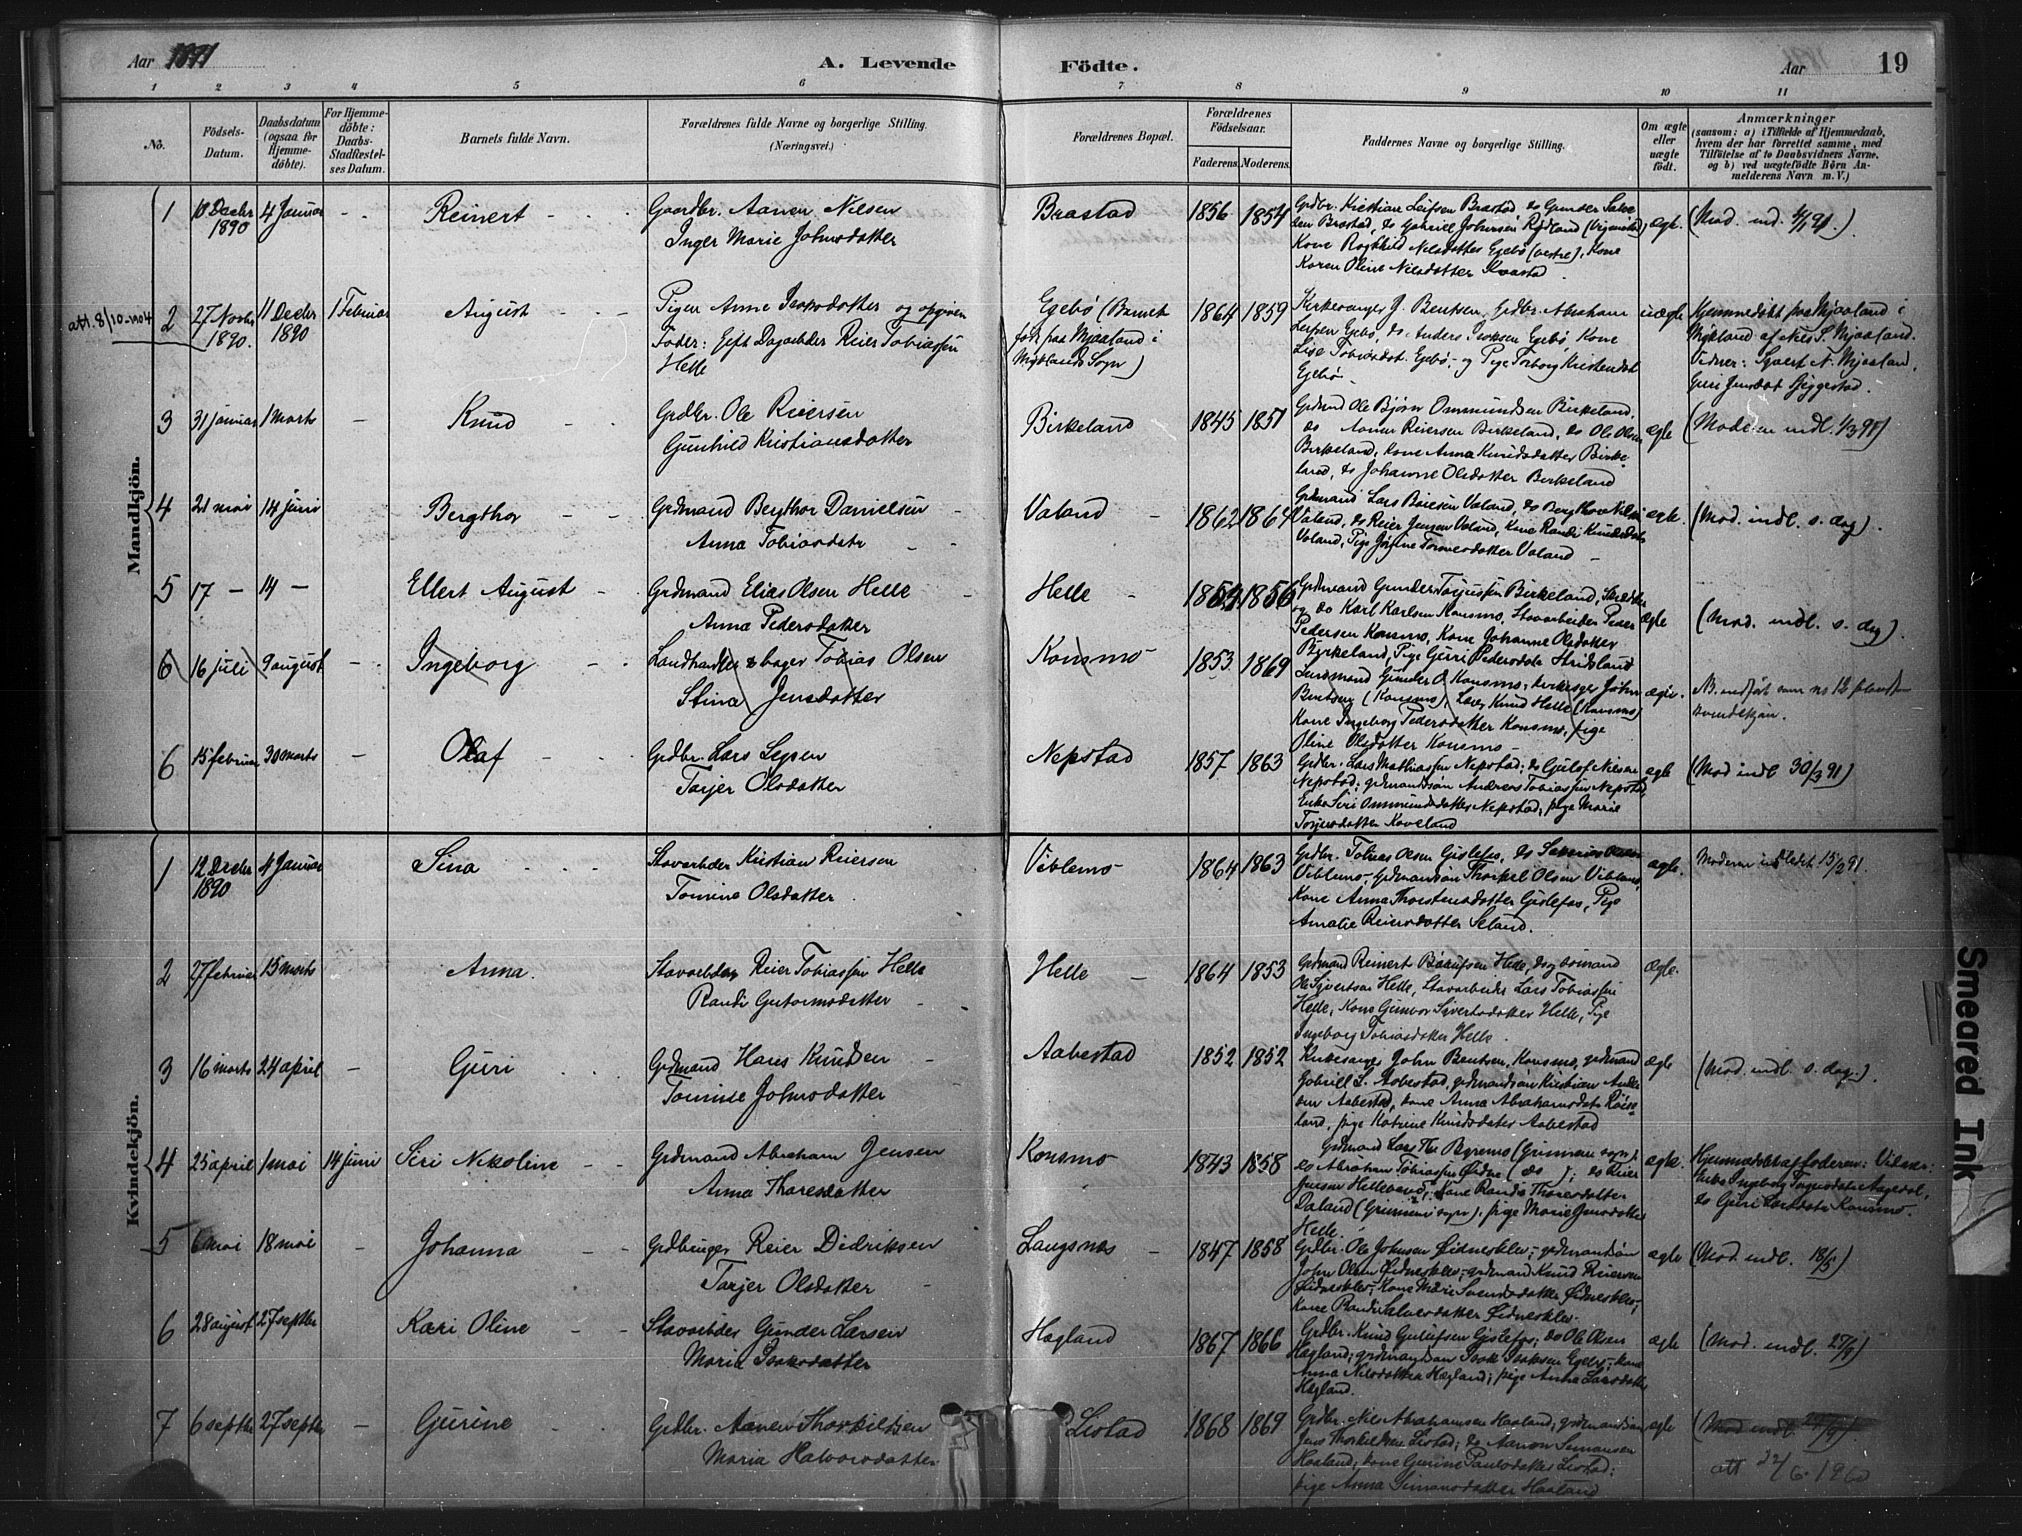 Aar 1891
A. Levende
Födte.
Aar 1891
19
1 2 3 4 5 6 7 8 9 10 11
No.
Födsels-
Datum.
Daabsdatum
(ogsaa for
Hjemme-
döbte).
For Hjemme-
döbte:
Daabs-
Stadfæstel-
ses Datum.
Barnets fulde Navn.
Forældrenes fulde Navne og borgerlige Stilling.
(Næringsvei.)
Forældrenes Bopæl.
Forældrenes
Födselsaar.
Faderens.
Moderens.
Faddernes Navne og borgerlige Stilling.
Om ægte
eller
uægte
födt.
Anmærkninger
(saasom: a) i Tilfælde af Hjemmedaab,
hvem der har forrettet samme, med
Tilföielse af to Daabsvidners Navne,
og b) ved uægtefödte Börn An-
melderens Navn m. V.)
Mandkjön.
1
10 Decbr
1890
4 Januar
Reinert
Gaardbr. Aanen Nilsen
Inger Marie Johnsdatter
Brastad
1856
1854
Grdbr. Kristian Leifsen Brastad, do Gunder Salve
sen Brastad, do Gabriel Johnsen Rydland (Vigmostad)
Kone Roghild Nilsdatter Egebö (vestre), Kone
Karen Oline Nilsdatter
ægte.
(Mod. ind. 4/1 91.)
att. 8/10-1904
2
27 Novbr
1890.
11 Decbr
1890
1 Februar
August
Pigen Anne Isaksdatter og opgiven
Fader: Gift Dagarbder Reier Tobiassen
Helle
Egebö (Barnet
födt paa Mjaaland i
Myklands Sogn)
1864
1859
Kirkesanger J. Bentsen, Grdbr. Abraham
Leifsen Egebö, do Anders Isaksen Egebö, Kone
Lise Tobiasdat. Egebö, og Pige Torborg Kristensdat
Egebö
uægte
Hjemmedöbt paa Mjaaland i
Mykland af Niels S. Mjaaland.
Vidner: N. Mjaaland,
Guri Jensdat
3
31 januar
1 marts
Knud
Grdbr. Ole Reiersen
Gunhild Kristiansdatter
Birkeland
1845
1851
Grdmand Ole Björn Ommundsen Birkeland,
do Aanen Reiersen Birkeland, do Ole Olsen
Birkeland, Kone Anna Knudsdatter Birke-
land, do Johanne Olsdatter Birkeland
ægte
(Moderen indl. 1/3 91)
4
21 mai
14 juni
Bergthor
Grdmand Bergthor Danielsen
Anna Tobiasdatr
Valand
1862
1864
Grdmand Lars Valand, do Bergthor
Valand, do Reier Jensen Valand, Kone Randi Knudsdatr
Valand, Pige Jörgine Tonnesdatter Valand
ægte.
(Mod. indl. s. dag).
5
17 –
14 –
Ellert August
Grdmand Elias Olsen Helle
Anna Pedersdatter
Helle
1854
1856
Grdmand Gunder Torjussen Birkeland,
og do Karl Karlsen Konsmo, Stavarbeider Peder
Pedersen Konsmo, Kone Johanne Olsdatter
Byrkeland, Pige Guri Pedersdatr Stridsland
ægte
(Mod. indl. s. dag).
6
16 juli
9 august
Ingeborg
Landhandler & bager Tobias Olsen
Stina Jensdatter
Konsmo
1853
1869
Gunder O. Konsmo, kirkesger John
Bentsen (Konsmo), Knud Helle (Konsmo)
Kone Ingeborg Pedersdatter Konsmo, pige
Oline Olsdatter Konsmo
ægte.
NB. indfört som no 12 blandt
kvindekjön.
6
15 februar
30 marts
Olaf
Grdbr. Lars
Tarjer Olsdatter
Nepstad
1857
1863
Grdbr. Lars Mathiassen Nepstad; do Gjulof Nilsen
Nepstad; grdmandsön Andreas Tobiassen Nepstad,
Enke Siri Ommundsdatter Nepstad; pige Marie
Torjusdatter Haveland
ægte
(Mod indl 30/3 91)
Kvindekjön.
1
12 Decbr
1890
4 Januar
Sina
Stavarbder Kristian Reiersen
Tomine Olsdatter
Viblemo
1864
1863
Grdbr. Tobias Olsen Gislefos, do
Viblemo, grdmandsön Thorkel Olsen Viblemo,
Kone Anna Thorstensdatter Gislefos, Pige
Amalie Reiersdatter Seland.
ægte.
Moderen indledet 15/2 91.
2
27 februar
15 marts
Anna.
Stavarbder Reier Tobiassen Helle
Randi Gutormsdatter
Helle
1864
1853
Grdmand Reinert Helle,
Ole Syvertsen Helle, Stavarbeider Lars Tobiassen
Helle, Kone Gunvor Sivertsdatter Helle, Pige
Ingeborg Tobiasdatter Helle.
Ægte.
3
16 marts
24 april
Guri
Grdmand Hans Knudsen
Tomine Johnsdatter
Aabestad
1852
1852
Kirkesanger John Bentsen, Konsmo, grdmand
Gabriel L. Aabestad, grdmandsön Kristian Ander
sen Aabestad, kone Anna Abrahamsdatr
land, pige Katrine Knudsdatter Aabestad
ægte
(Mod. indl. s. dag.).
4
25 april
1 mai
14 juni
Siri Nikoline
Grdmand Abraham Jensen
Anna Tharesdatter
Konsmo
1843
1858
Grdmand Lars Ths Byremo (Grimnæs sogn),
do Abraham Tobiassen (do); do Reier
Jensen Helle, Kone Randi Tharesdatter
Daland (Grimnæs sogn), pige Marie Jensdatter
Helle.
ægte.
Hjemmedöbt af faderen: Vidner:
Enke Ingeborg Aagedal,
do Guri Larsdatr Konsmo.
5
6 mai
18 mai
Johanna
Grdbruger Reier Didriksen
Tarjer Olsdatter
Langsnæs
1847
1858
Grdbr. Ole Johnsen Øidneskleiv, grdmandsön
John Olsen Øidneskleiv, grdmand Knud Reiersen
Øidneskleiv, Kone Marie Svensdatter Øidneskleiv,
Kone Randi Salvesdatter Øidneskleiv.
ægte
(Mod. indl. 18/5)
6
28 august
27 septbr
Kari Oline
Stavarbder Gunder Larsen
Maria Isaksdatter
Hagland
1867
1866
Grdbr. Knud Gislefos; do Ole Olsen
Hagland; grdmandsön Isak Isaksen Egebö, kone
Anna Nilsdatter Hagland; pige Anna Larsdatter
Hagland.
ægte
(Mod. indl. 27/9)
7
6 septbr
27 septbr
Gurine
Grdbr. Aanen Thorkildsen
Maria Halvorsdatter
Listad
1868
1869
Grdbr. Nils Abrahamsen Haaland; grdmandsön
Jens Thorkildsen Listad; do Aanon Simonsen
Haaland; kone Gurine Paulsdatter Listad;
pige Anna Simonsdatter Haaland
ægte
(Mod indl 27/9)
att 22/6. 1960
Smeared Ink